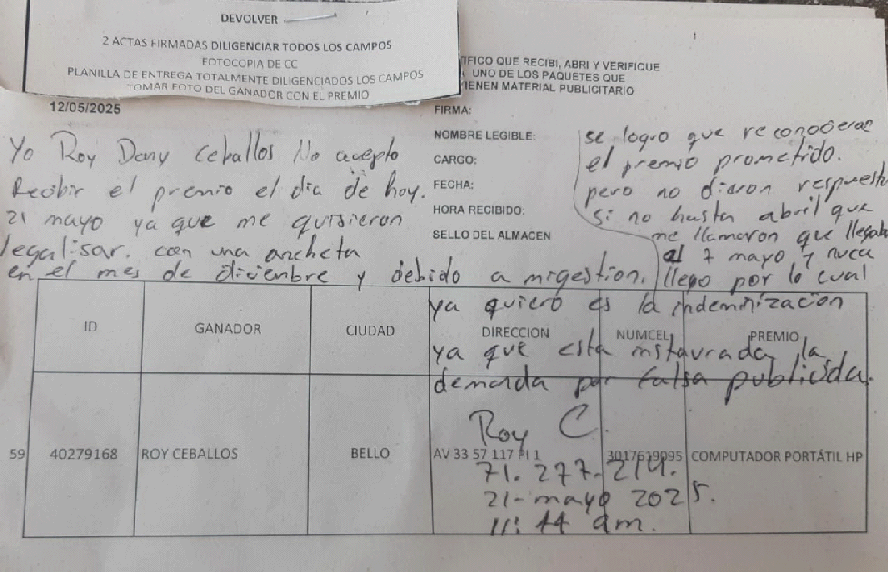 DEVOLVER
2 ACTAS FIRMADAS DILIGENCIAR TODOS LOS CAMPOS
FOTOCOPIA DE CC
PLANILLA DE ENTREGA TOTALMENTE DILIGENCIADOS LOS CAMPOS
TOMAR FOTO DEL GANADOR CON EL PREMIO
12/05/2025
TIFICO QUE RECIBI, ABRI Y VERIFIQUE
UNO DE LOS PAQUETES QUE
TIENEN MATERIAL PUBLICITARIO
FIRMA:
NOMBRE LEGIBLE:
CARGO:
FECHA:
HORA RECIBIDO:
SELLO DEL ALMACEN
Yo Roy Dany Ceballos No acepto
Recibir el premio el día de hoy.
21 mayo ya que me quisieron
legalisar. con una ancheta
en el mes de diciembre y debido a migestion.
se logro que reconocieran
el premio prometido.
pero no dieron respuesta
si no hasta abril que
me llamaron que llegaba
al 7 mayo y nuca
llego por lo cual
ya quiero es la indemnización
ya que esta instaurada la
demanda por falsa publicida.
Roy C.
71.277.214.
21-mayo 2025.
11:44 am.
ID GANADOR CIUDAD DIRECCION NUMCEL PREMIO
59 40279168 ROY CEBALLOS BELLO AV 33 57 117 PI 1 3017619095 COMPUTADOR PORTÁTIL HP